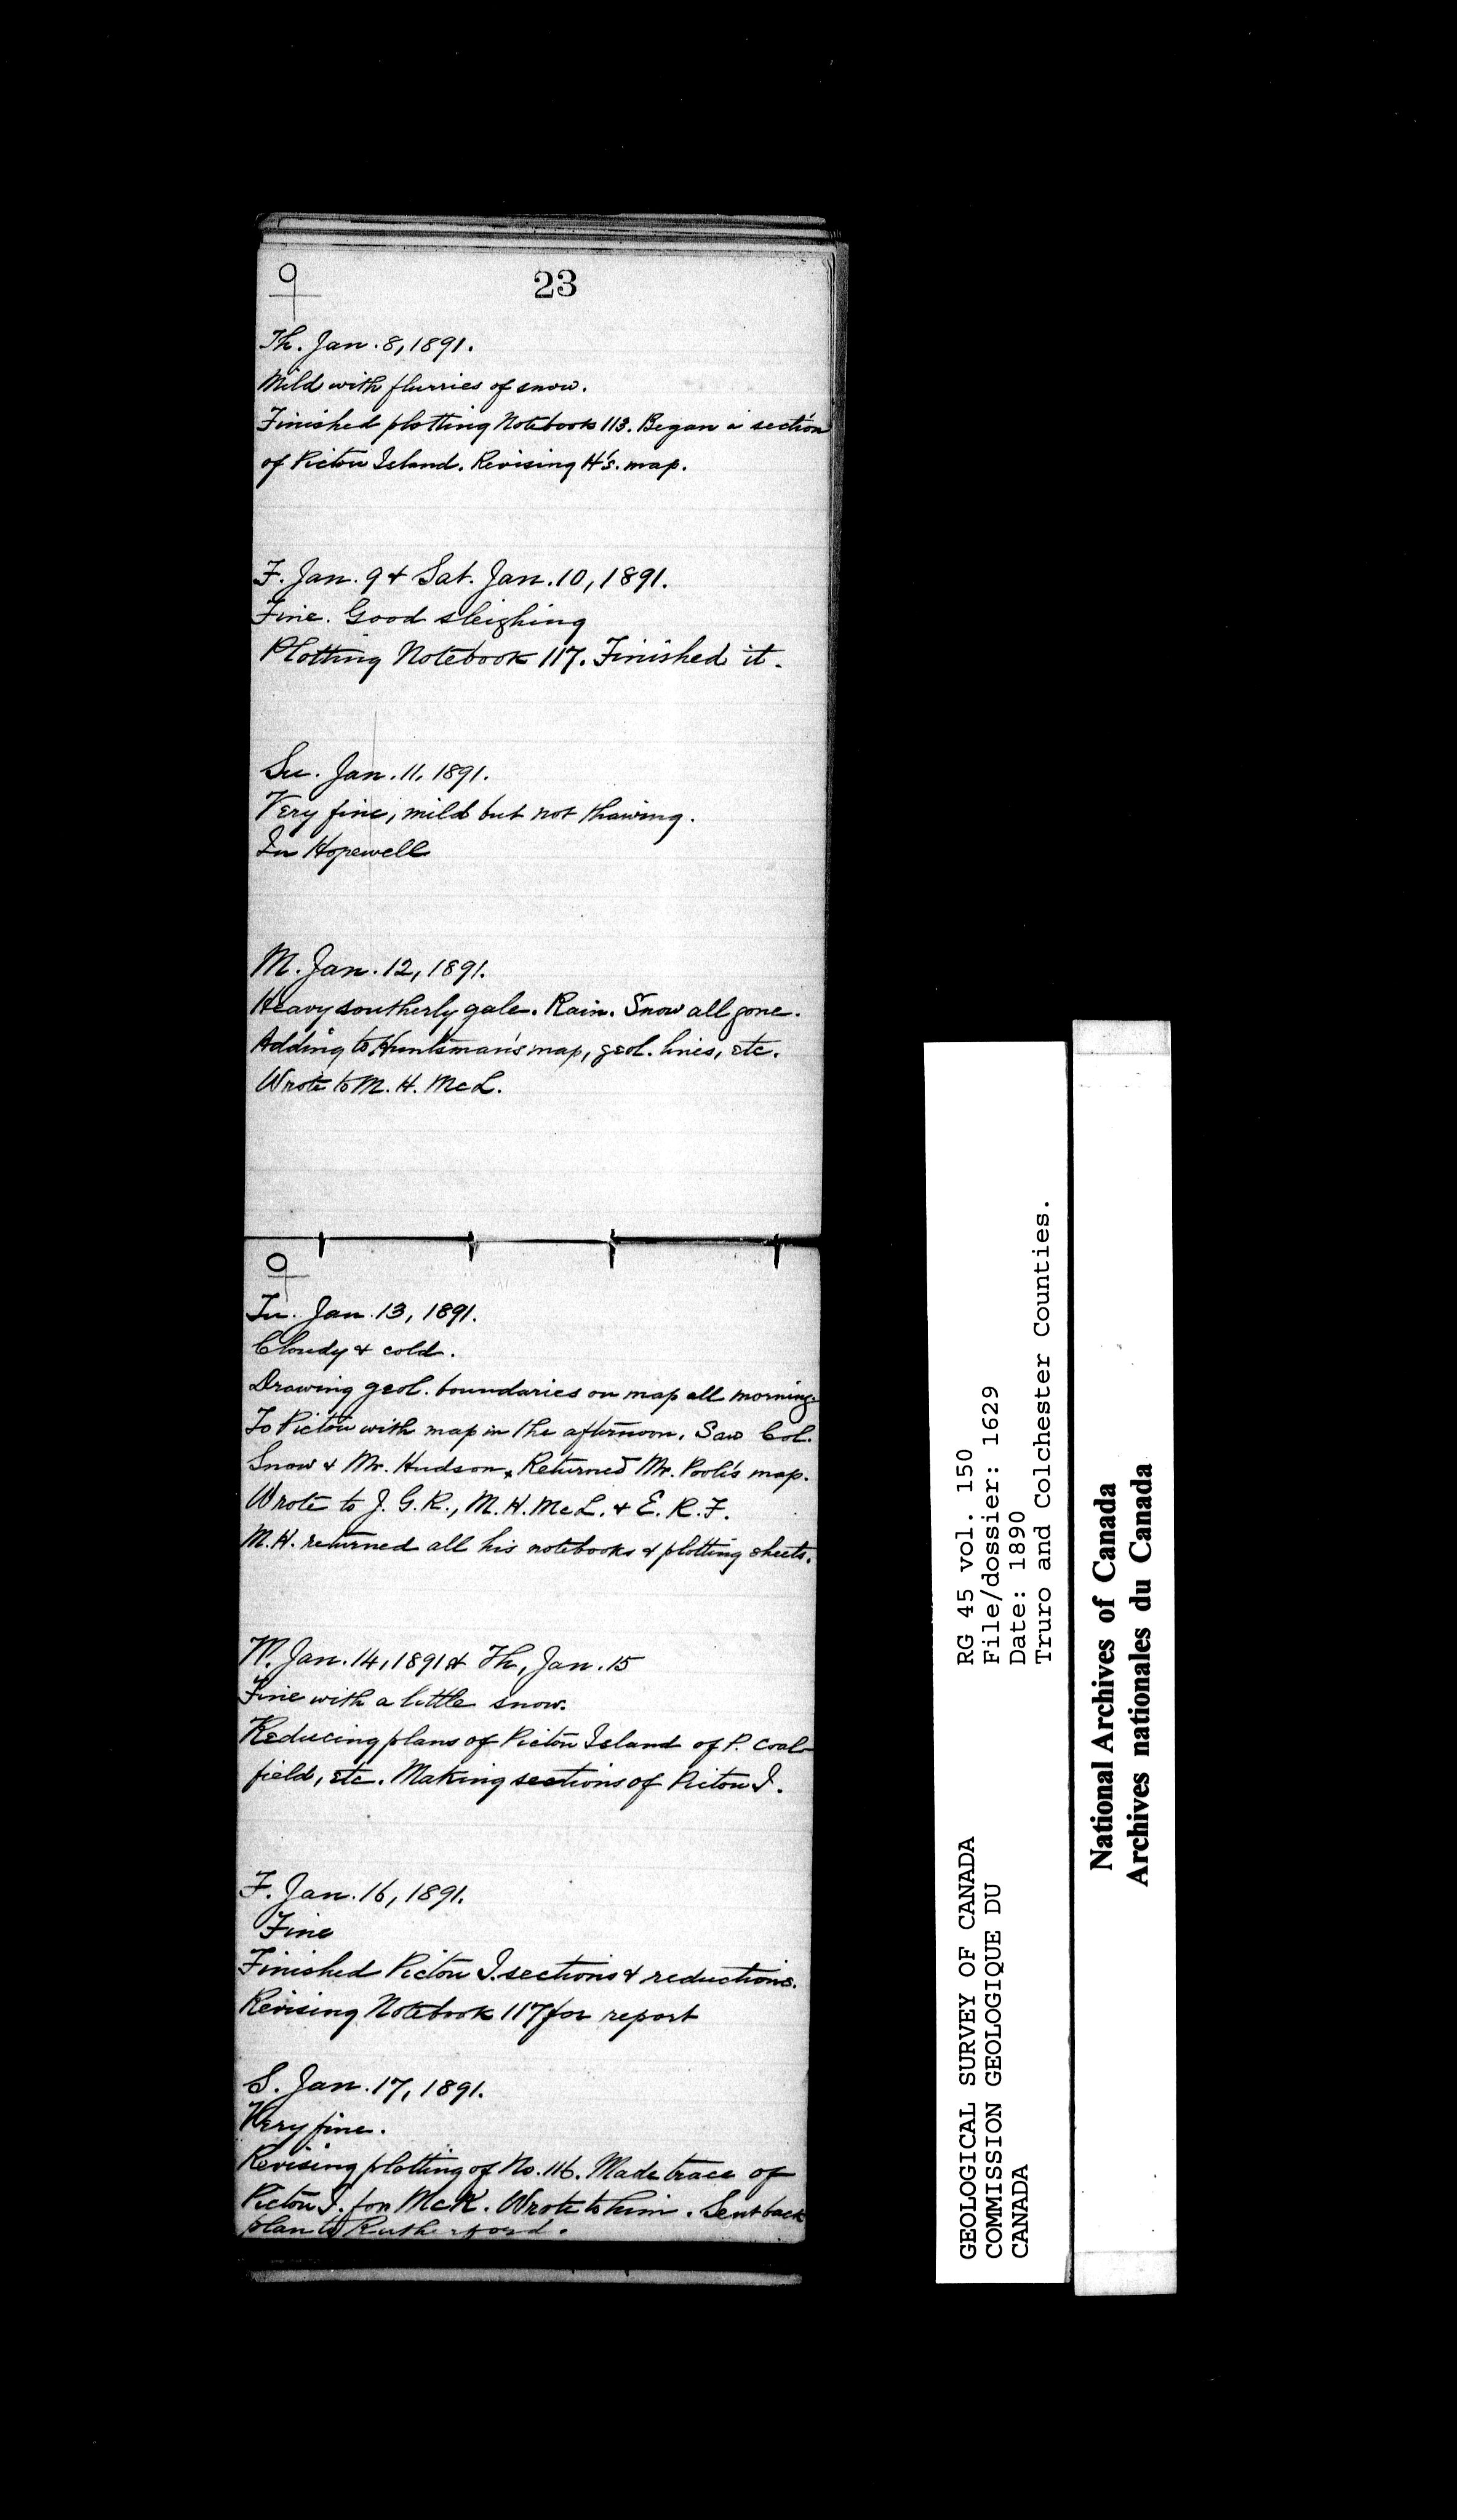 23
Th. Jan. 8, 1891.
Mild with flurries of snow.
Finished plotting Notebook 113. Began a section
of Pictou Island. Revising H's. map.
F. Jan. 9 & Sat. Jan. 10, 1891.
Fine. Good sleighing
Plotting Notebook 117. Finished it.
Su. Jan. 11, 1891.
Very fine, mild but not thawing.
In Hopewell
M. Jan. 12, 1891.
Heavy southerly gale. Rain. Snow all gone.
Adding to Huntsman's map, geol. lines, etc.
Wrote to M. H. McL.
Tu. Jan. 13, 1891.
Cloudy & cold.
Drawing geol. boundaries on map all morning.
To Pictou with map in the afternoon. Saw Col.
Snow & Mr. Hudson. Returned Mr. Poole's map.
Wrote to J. G. R., M. H. McL. & E. R. F.
M. H. returned all his notebooks & plotting sheets.
W. Jan. 14, 1891 & Th, Jan. 15
Fine with a little snow.
Reducing plans of Pictou Island of P. Coal-
field, etc. Making sections of Pictou I.
F. Jan. 16, 1891.
Fine
Finished Pictou I. sections & reductions.
Revising Notebook 117 for report
S. Jan. 17, 1891.
Very fine.
Revising plotting of No. 116. Made trace of
Pictou I. for McK. Wrote to him. Sent back
plan to Rutherford.
GEOLOGICAL SURVEY OF CANADA
COMMISSION GEOLOGIQUE DU
CANADA
RG 45 vol. 150
File/dossier: 1629
Date: 1890
Truro and Colchester Counties.
National Archives of Canada
Archives nationales du Canada